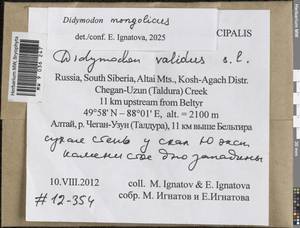 Didymodon mongolicus
det./conf. E. Ignatova, 2025
CIPALIS
Didymodon validus s.l.
Russia, South Siberia, Altai Mts., Kosh-Agach Distr.
Chegan-Uzun (Taldura) Creek
11 km upstream from Beltyr
49°58' N – 88°01' E, alt. = 2100 m
Алтай, р. Чеган-Узун (Талдура), 11 км выше Бельтира
сухая степь у скал Ю эксп.
каменистое дно западины
10.VIII.2012
coll. M. Ignatov & E. Ignatova
собр. М. Игнатов и Е.Игнатова
#12-354